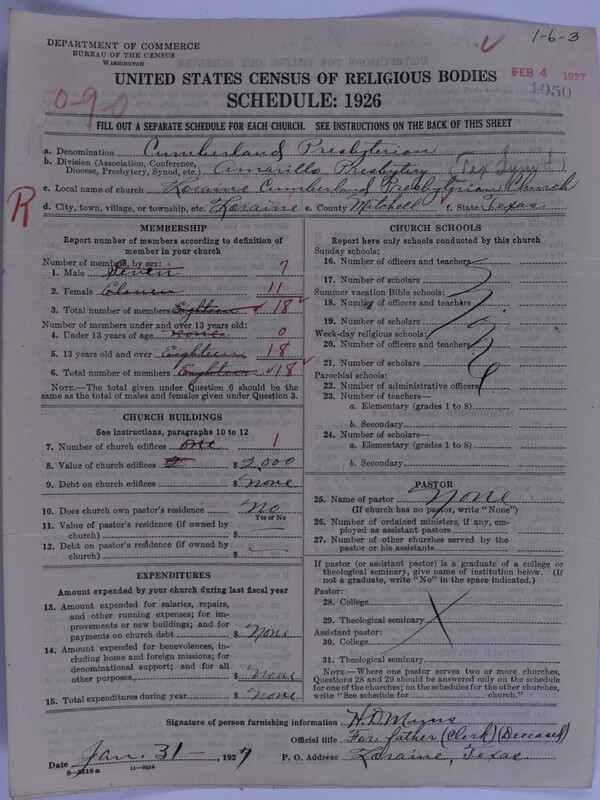 1-6-3
DEPARTMENT OF COMMERCE
BUREAU OF THE CENSUS
WASHINGTON
UNITED STATES CENSUS OF RELIGIOUS BODIES
FEB 4 1927
1050
SCHEDULE: 1926
0-9-0
FILL OUT A SEPARATE SCHEDULE FOR EACH CHURCH. SEE INSTRUCTIONS ON THE BACK OF THIS SHEET
a. Denomination Cumberland Presbyterian
b. Division (Association, Conference, Diocese, Presbytery, Synod, etc.) Amarillo Presbytery Tex Synod
c. Local name of church Loraine Cumberland Presbyterian Church
R
d. City, town, village, or township, etc. Loraine e. County Mitchell f. State Texas
MEMBERSHIP
Report number of members according to definition of
member in your church
Number of members, by sex:
1. Male Seven 7
2. Female Eleven 11
3. Total number of members Eighteen 18
Number of members under and over 13 years old:
4. Under 13 years of age None 0
5. 13 years old and over Eighteen 18
6. Total number of members Eighteen 18
NOTE.—The total given under Question 6 should be
the same as the total of males and females given under Question 3.
CHURCH BUILDINGS
See instructions, paragraphs 10 to 12
7. Number of church edifices one 1
8. Value of church edifices $ 2,000
9. Debt on church edifices $ None
10. Does church own pastor's residence No
Yes or No
11. Value of pastor's residence (if owned by
church) $
12. Debt on pastor's residence (if owned by
church) $
EXPENDITURES
Amount expended by your church during last fiscal year
13. Amount expended for salaries, repairs,
and other running expenses; for im-
provements or new buildings; and for
payments on church debt $ None
14. Amount expended for benevolences, in-
cluding home and foreign missions; for
denominational support; and for all
other purposes $ None
15. Total expenditures during year $ None
CHURCH SCHOOLS
Report here only schools conducted by this church
Sunday schools:
16. Number of officers and teachers
17. Number of scholars
Summer vacation Bible schools:
18. Number of officers and teachers
19. Number of scholars
Week-day religious schools:
20. Number of officers and teachers
21. Number of scholars
Parochial schools:
22. Number of administrative officers
23. Number of teachers—
a. Elementary (grades 1 to 8)
b. Secondary
24. Number of scholars—
a. Elementary (grades 1 to 8)
b. Secondary
PASTOR
25. Name of pastor None
(If church has no pastor, write "None")
26. Number of ordained ministers, if any, em-
ployed as assistant pastors
27. Number of other churches served by the
pastor or his assistants
If pastor (or assistant pastor) is a graduate of a college or
theological seminary, give name of institution below. (If
not a graduate, write "No" in the space indicated.)
Pastor:
28. College
29. Theological seminary
Assistant pastor:
30. College
31. Theological seminary
NOTE.—Where one pastor serves two or more churches,
Questions 28 and 29 should be answered only on the schedule
for one of the churches; on the schedules for the other churches,
write "See schedule for church."
Signature of person furnishing information
Official title For father (Clerk) (Deceased)
Date Jan. 31 —, 1927 P. O. Address Loraine, Texas